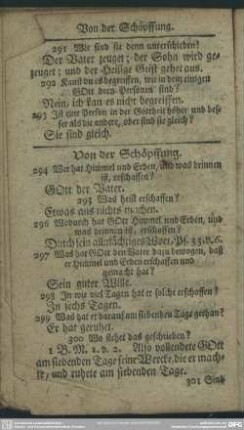 Von der Schöpffung.
291 Wie sind sie denn unterschieden?
Der Vater zeuget; der Sohn wird ge-
zeuget; und der Heilige Geist gehet aus.
292 Kanst du es begreiffen, wie in dem einigen
GOtt drey Personen sind?
Nein, ich kan es nicht begreiffen.
293 Ist eine Person in der Gottheit höher und bes-
ser als die andere, oder sind sie gleich?
Sie sind gleich.
Von der Schöpffung.
294 Wer hat Himmel und Erden, und was drinnen
ist, erschaffen?
GOtt der Vater.
295 Was heist erschaffen?
Etwas aus nichts machen.
296 Wodurch hat GOtt Himmel und Erden, und
was drinnen ist, erschaffen?
Durch sein allmächtiges Wort, Ps. 33. v. 6.
297 Was hat GOtt den Vater dazu bewogen, daß
er Himmel und Erden erschaffen und
gemacht hat?
Sein guter Wille.
298 In wie viel Tagen hat er solche erschaffen?
In sechs Tagen.
299 Was hat er darauf am siebenden Tage gethan?
Er hat geruhet.
300 Wo stehet das geschrieben?
1 B. M. 2. v. 2. Also vollendete GOtt
am siebenden Tage seine Wercke, die er mach-
te, und ruhete am siebenden Tage.
301 Sind